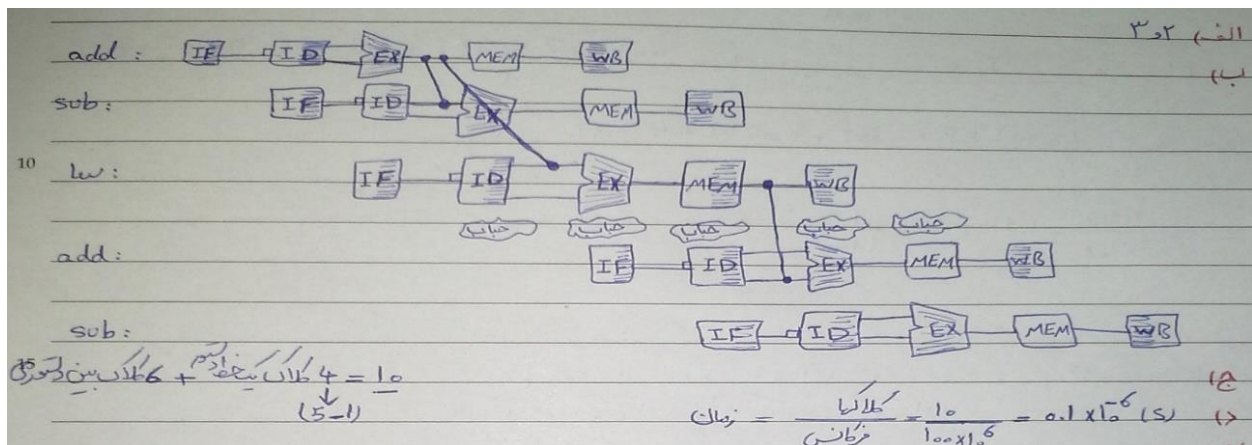 الف) ۲ و ۳
add: IF ID EX MEM WB
ب)
sub: IF ID EX MEM WB
10
lw: IF ID EX MEM WB
حباب حباب حباب حباب حباب
add: IF ID EX MEM WB
sub: IF ID EX MEM WB
ج)
6 کلاک بین + 4 کلاک = 10
(5-1)
د) زمان = کلاک‌ها / فرکانس = 10 / 100×10^6 = 0.1×10^-6 (s)